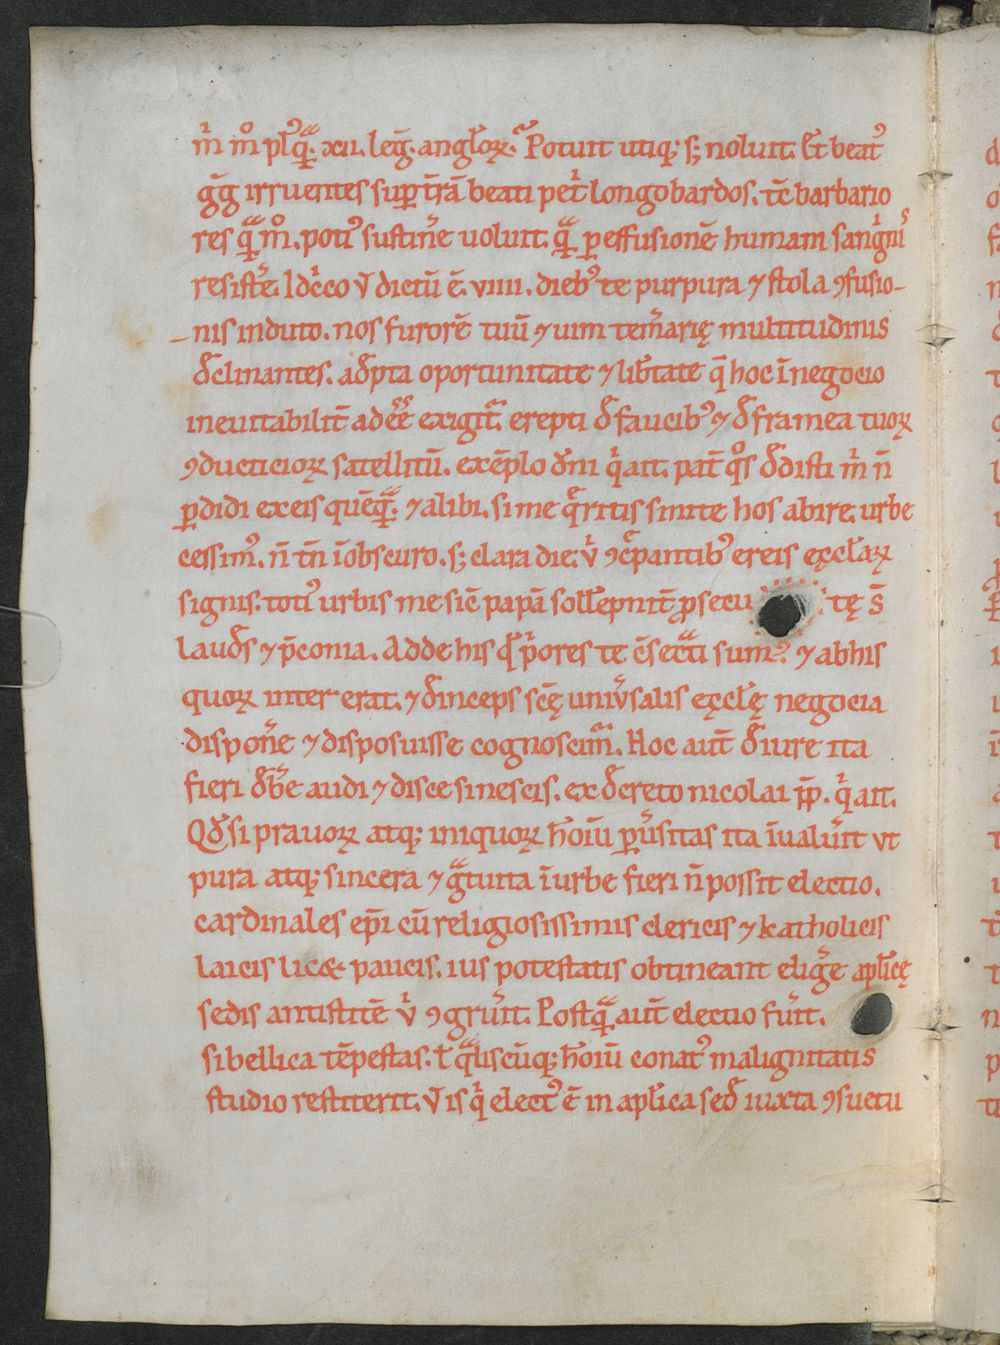 m̄ m̊ pl'q̄ꝫ. xii. leg̅. angl'oꝝ. Potuit utiq; s; noluit. Et beat'
gg̅ irruentes sup t̄rā beati pet̾ longobardos. tc̄ barbario
res q̄ꝫ m̊. poti' sustin̾e uoluit. q̄ꝫ ꝑ effusionē humani sangⁱni'
resist̾e. Idcⁱco ů dictū ē. viiii. dieb' te purpura ⁊ stola ꝯfusio-
-nis induto. nos furorē tuū ⁊ uim tem̾arię multitudinis
đclinantes. ađpta oportunitate ⁊ lib̾tate q̄ hoc ī negocio
ineuitabilit̄ adēē exigit̾. erepti đ faucib' ⁊ đ framea tuoꝝ
ꝯducticioꝝ satellitū. exēplo dn̄i qⁱ ait. pat̄ qͦs đdisti m̄ n̄
ꝑdidi ex eis quēq̄ꝫ. ⁊ alibi. si me qͣritis sinite hos abire. urbe
cessim'. n̄ tn̄ ī obscuro. s; clara die. uⁱ ꝯcͣpantib' ereis ęccl'aꝝ
signis. toti' urbis me sic̄ papā soll'epnit̄ ꝓsecu tę s̄
lauđs ⁊ p̄conia. Adde his qđ pⁱores te c̄sec̄ti sum'. ⁊ ab his
quoꝝ inter erat. ⁊ đinceps scę̄ univ̾salis ęccl'ę negocia
dispon̾e ⁊ disposuisse cognoscim̾. Hoc aut̄ đ iure ita
fieri đb̾e audi ⁊ disce si nescis. ex đcreto nicolai pp̄. qⁱ ait.
Qđ si prauoꝝ atq; iniquoꝝ hōiū ꝑu̾sitas ita īualu̾it vt
pura atq; sincera ⁊ gͣtuita ī urbe fieri n̄ possit electio.
cardinales ep̄i cū religiosissimis clericis ⁊ katholicis
laicis lic& paucis. ius potestatis obtineant elig̾e apl'icę
sedis antistitē uⁱ ꝯgru̾it. Postq̄ꝫ aut̄ electio fu̾it.
si bellica tēpestas. ł qͣliscūq; hōiū conat' malignitatis
studio restiterit. ů is qⁱ elect' ē in apl'ica seđ iuxta ꝯsuetu